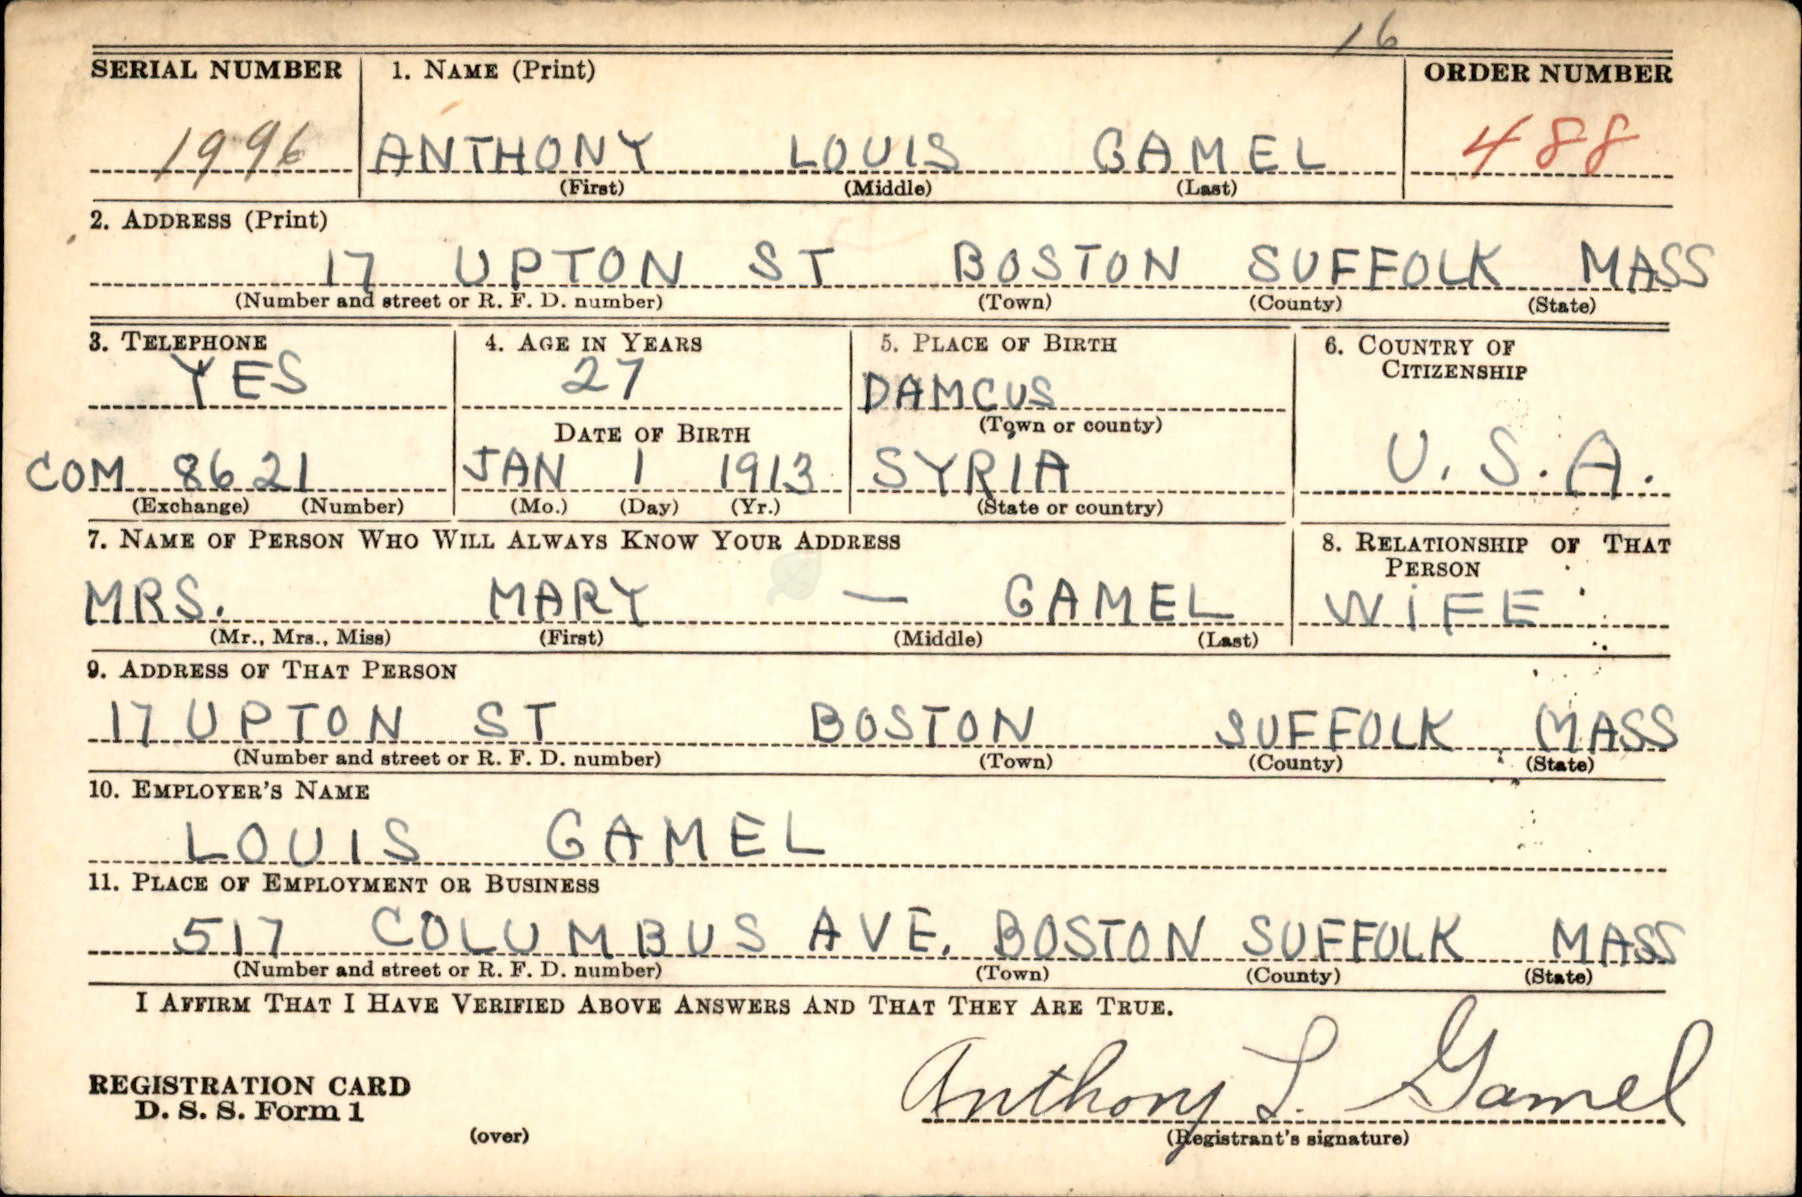 16
SERIAL NUMBER 1. NAME (Print) ORDER NUMBER
1996 ANTHONY LOUIS GAMEL 488
(First) (Middle) (Last)
2. ADDRESS (Print)
17 UPTON ST BOSTON SUFFOLK MASS
(Number and street or R. F. D. number) (Town) (County) (State)
3. TELEPHONE 4. AGE IN YEARS 5. PLACE OF BIRTH 6. COUNTRY OF
CITIZENSHIP
YES 27 DAMCUS
(Town or county)
DATE OF BIRTH
COM 8621 JAN 1 1913 SYRIA U.S.A.
(Exchange) (Number) (Mo.) (Day) (Yr.) (State or country)
7. NAME OF PERSON WHO WILL ALWAYS KNOW YOUR ADDRESS 8. RELATIONSHIP OF THAT
PERSON
MRS. MARY — GAMEL WiFE
(Mr., Mrs., Miss) (First) (Middle) (Last)
9. ADDRESS OF THAT PERSON
17 UPTON ST BOSTON SUFFOLK MASS
(Number and street or R. F. D. number) (Town) (County) (State)
10. EMPLOYER'S NAME
LOUIS GAMEL
11. PLACE OF EMPLOYMENT OR BUSINESS
517 COLUMBUS AVE. BOSTON SUFFOLK MASS
(Number and street or R. F. D. number) (Town) (County) (State)
I AFFIRM THAT I HAVE VERIFIED ABOVE ANSWERS AND THAT THEY ARE TRUE.
REGISTRATION CARD
D. S. S. Form 1
Anthony L. Gamel
(over) (Registrant's signature)